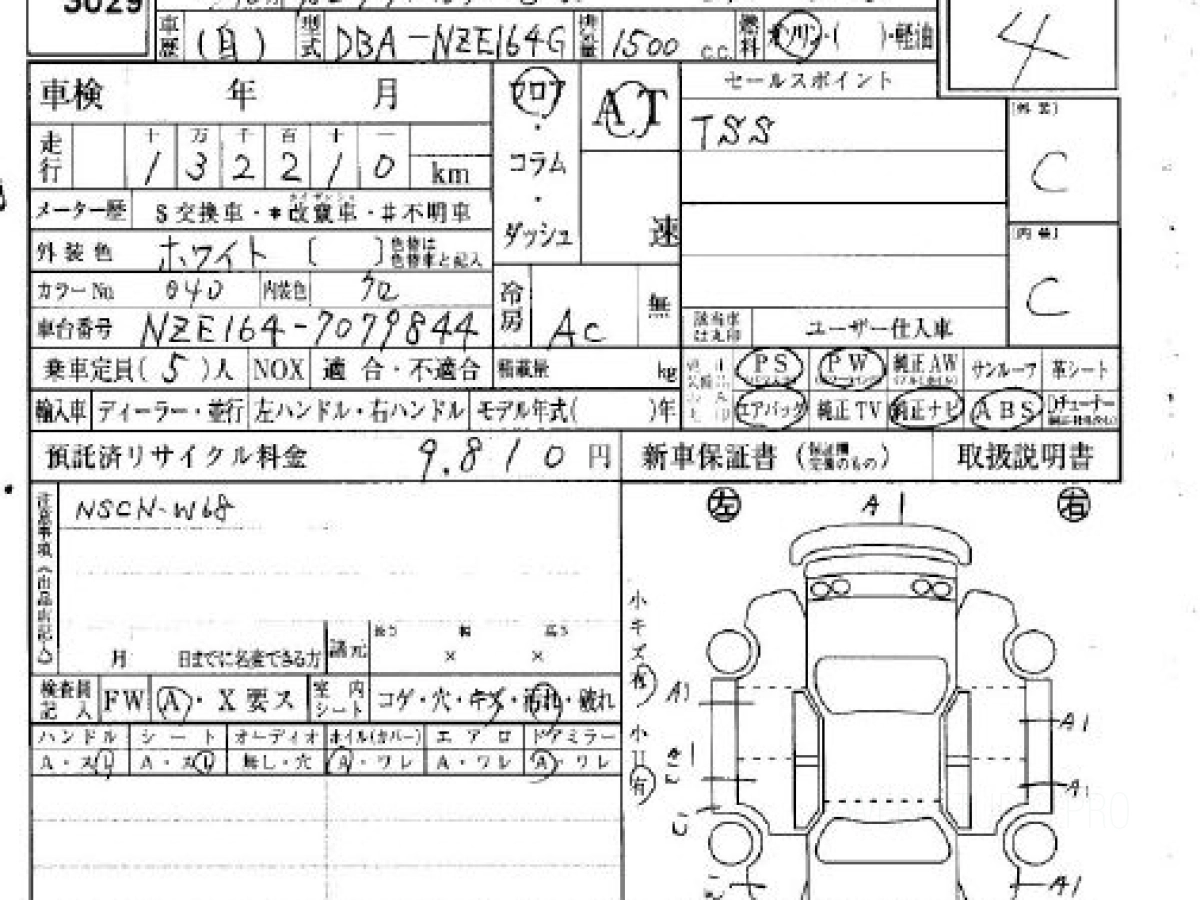 3029
車歴 (自) 型式 DBA-NZE164G 排気量 1500 C.C. 燃料 ガソリン・( )・軽油
4
車検 年 月 フロア AT セールスポイント
走行 十 万 千 百 十 一
1 3 2 2 1 0 km
・ コラム TSS [外装] C
メーター歴 $交換車・*改竄車・#不明車
外装色 ホワイト [ ] 色替は色替車と記入 ・ ダッシュ 速 [内装] C
カラーNo. 040 内装色 クロ 冷房 AC 無
車台番号 NZE164-7079844 該当車は丸印 ユーザー仕入車
乗車定員(5)人 NOX 適合・不適合 積載量 kg PS PW 純正AW サンルーフ 革シート
輸入車 ディーラー・並行 左ハンドル・右ハンドル モデル年式( )年 エアバッグ 純正TV 純正ナビ ABS Dチューナー
預託済リサイクル料金 9.810円 新車保証書 取扱説明書
注意事項(出品店記入) NSCN-W68
左 A1 右
月 日までに名変できる方 諸元 長さ 幅 高さ
× ×
小キズ 有 A1
検査員記入 FW A・X要ス 室内シート コゲ・穴・キズ・汚れ・破れ
ハンドル シート オーディオ ホイル(カバー) エアロ ドアミラー
A・スレ A・スレ 無し・穴 A・ワレ A・ワレ A・ワレ
小凹 有 A1
A1
A1